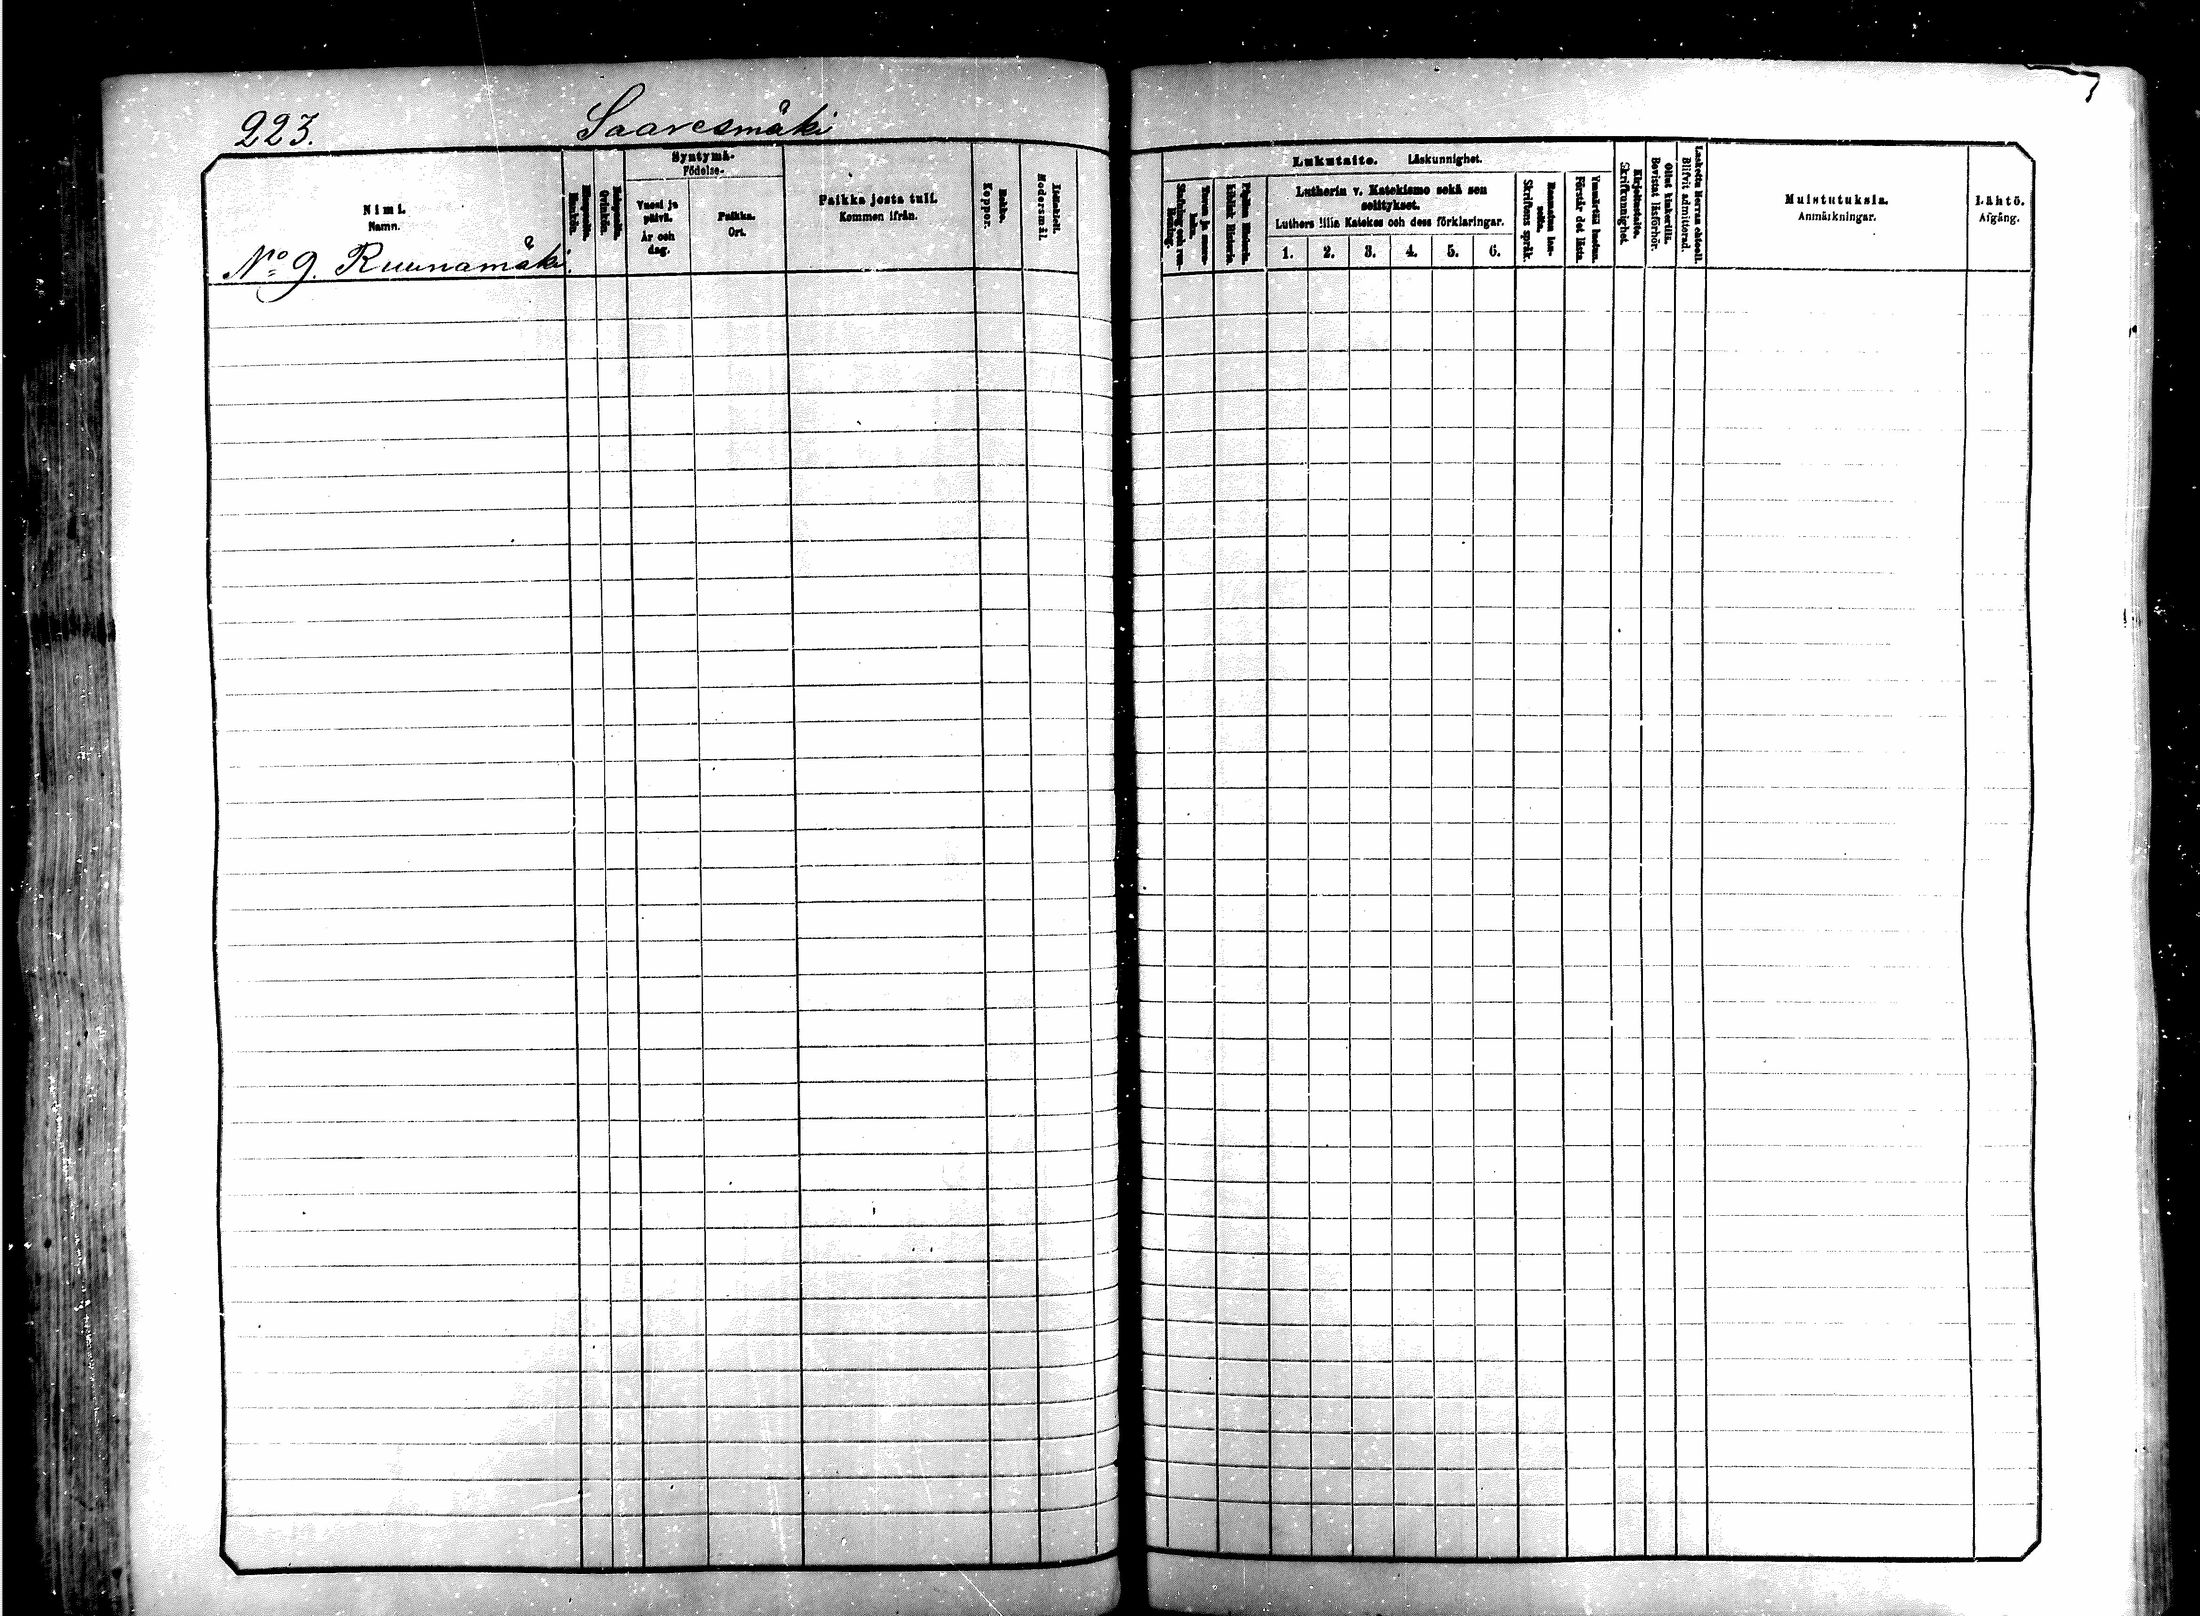 223.
Saaresmäki
Nimi.
Namn.
No 9. Ruunamäki.
Miespuolia.
Mankön.
Vaimopuolia.
Qvinkön.
Syntymä-
Födelse-
Vuosi ja
päivä.
År och
dag.
Paikka.
Ort.
Paikka josta tuli.
Kommen ifrån.
Rokko.
Koppor.
Äidinkieli.
Modersmål.
Tavaa ja
Stafning och ren-
läsning.
Biblisk Historia.
Lukutaito. Läskunnighet.
Lutherin v. Katekismo sekä sen
selitykset.
Luthers lilla Katekes och dess förklaringar.
1. 2. 3. 4. 5. 6.
Skriftens språk.
Ymmärtää luetun.
Förstår det lästa.
Kirjoitustaito.
Skrifkunnighet.
Ollut kinkerillä.
Bevistat läsförhör.
Laskettu Herran ehtoolle.
Blifvit admitterad.
Muistutuksia.
Anmärkningar.
Lähtö.
Afgång.